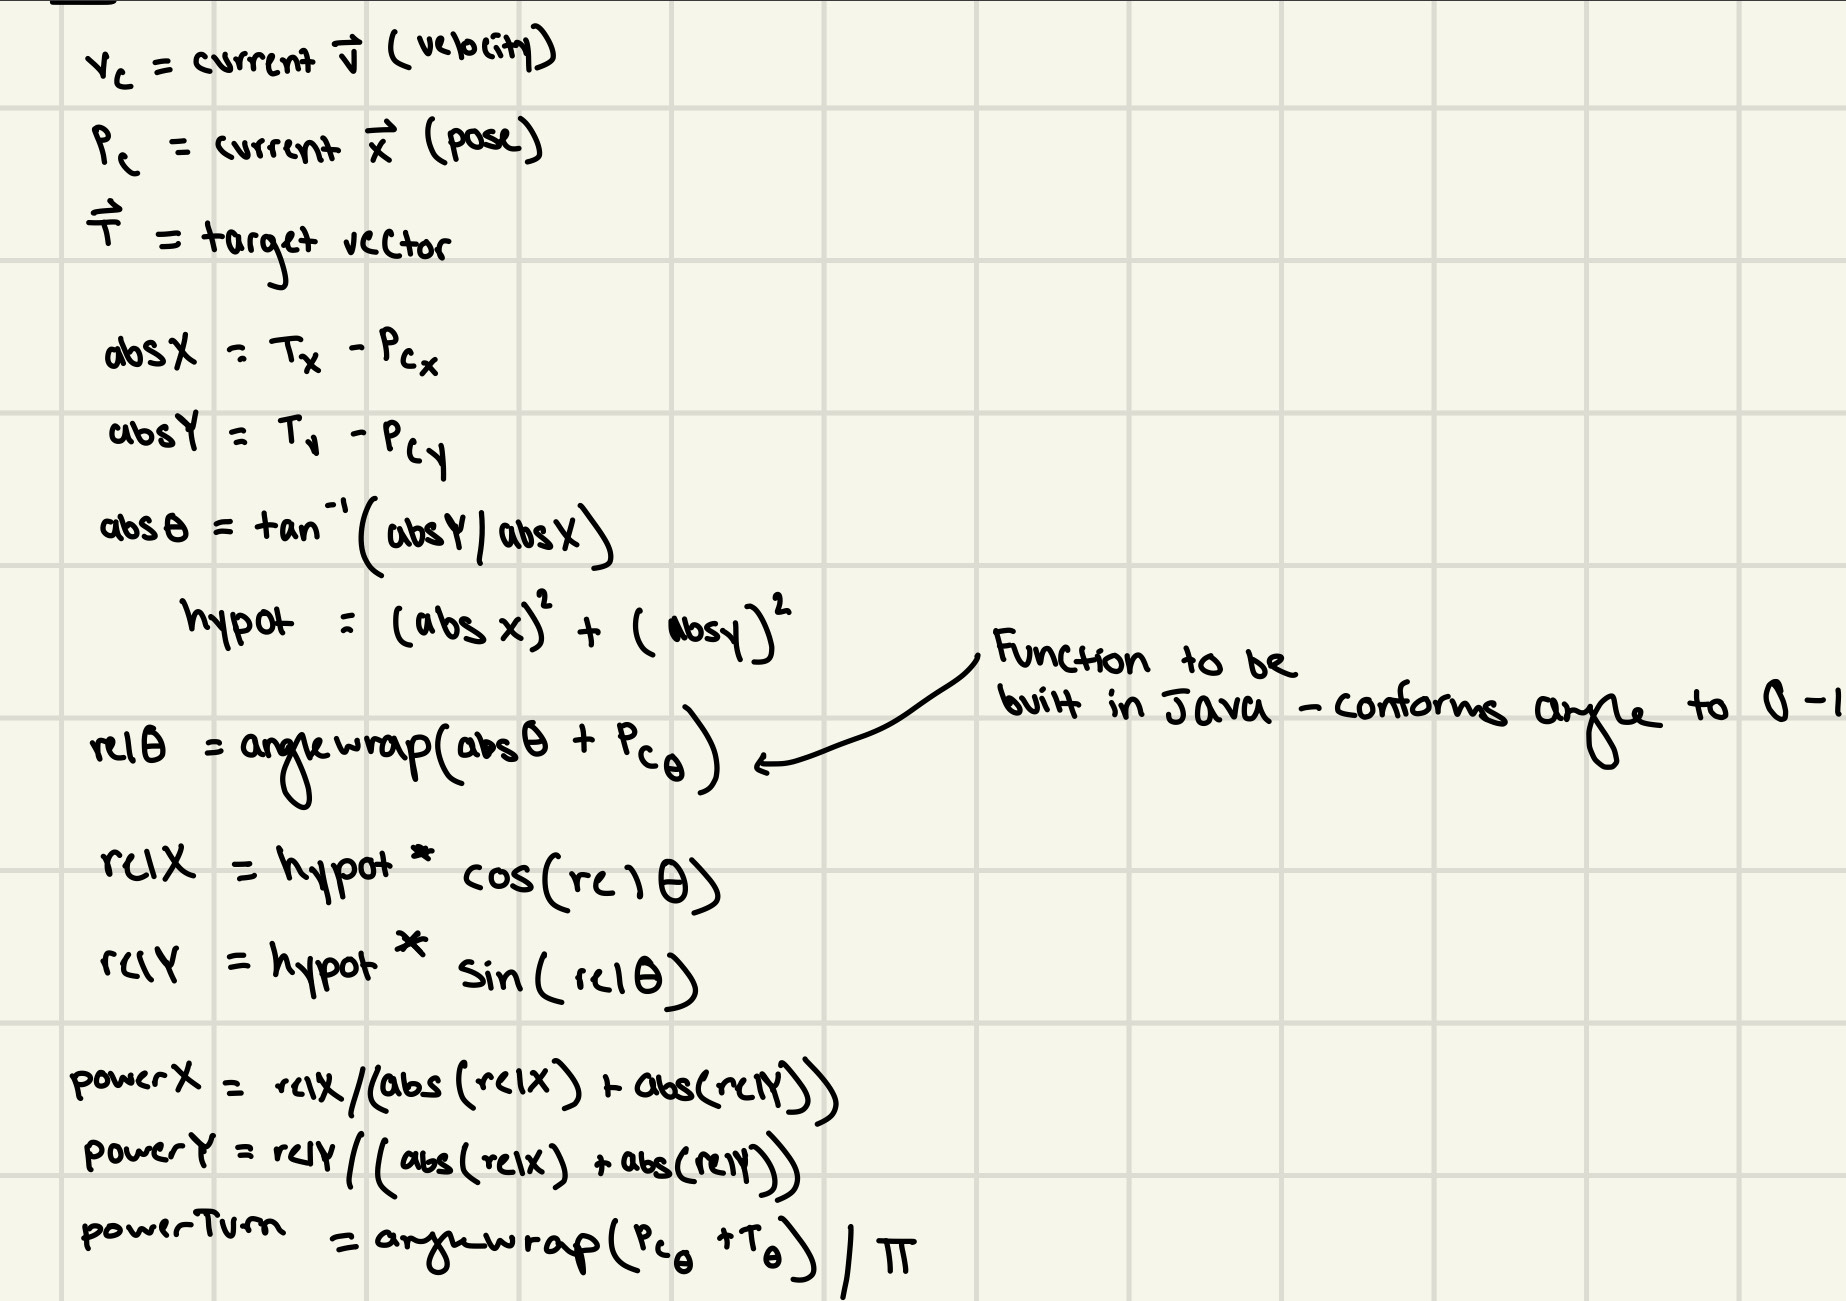 v_c = current v⃗ (velocity)
P_c = current x⃗ (pose)
T⃗ = target vector
absX = T_x - P_c_x
absY = T_y - P_c_y
absθ = tan⁻¹(absY/absX)
hypot = (abs x)² + (absy)²
Function to be
built in Java - conforms angle to 0-1
relθ = anglewrap(absθ + P_c_θ)
relX = hypot * cos(relθ)
relY = hypot * sin(relθ)
powerX = relX/(abs(relX) + abs(relY))
powerY = relY/((abs(relx) + abs(relY))
powerTurn = anglewrap(P_c_θ + T_θ) / π